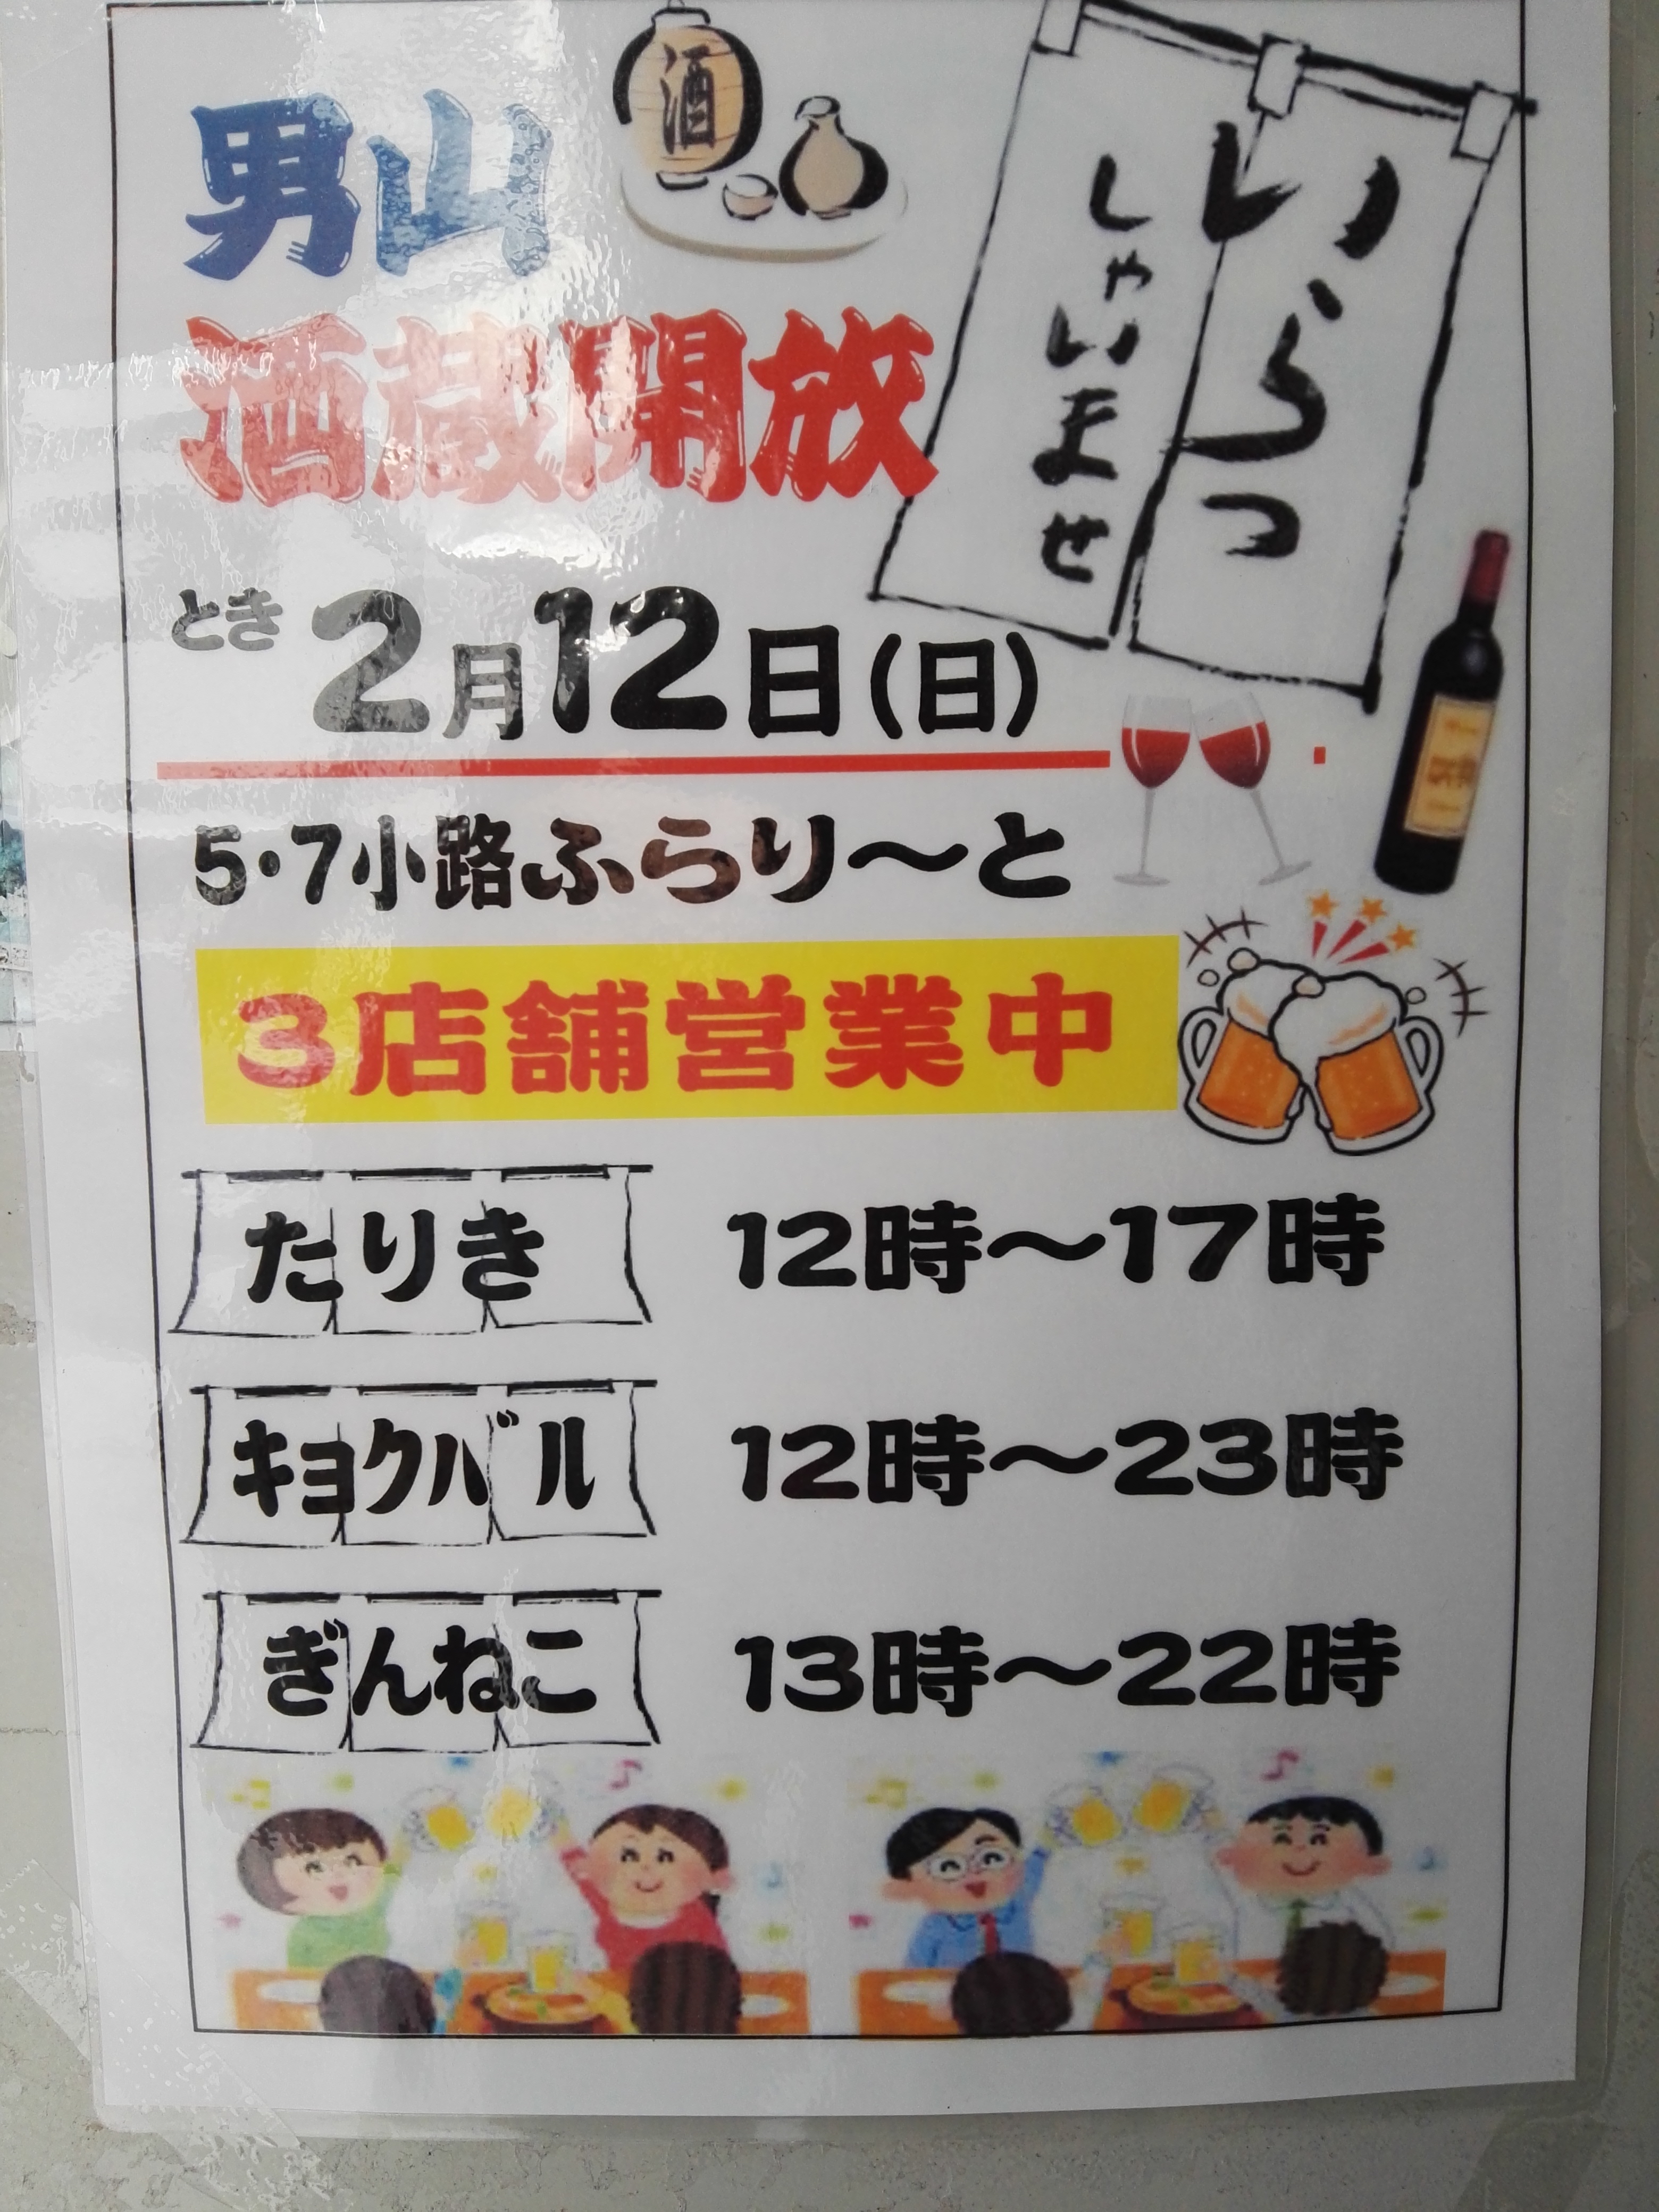 酒
いらっ
しゃいませ
男山
酒蔵開放
とき 2月12日(日)
5・7小路ふらり〜と
3店舗営業中
たりき 12時〜17時
キョクバル 12時〜23時
ぎんねこ 13時〜22時